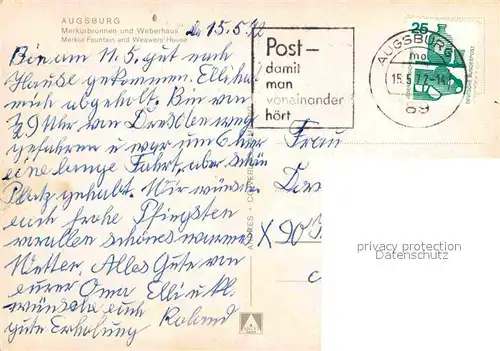 AUGSBURG
Merkurbrunnen und Weberhaus
Merkur Fountain and Weawers' House
d. 15.5.72
Bin am 11.5. gut nach
Hause gekommen. Elli hat
mich abgeholt. Bin von
½9 Uhr von Dresden weg
gefahren u war um 6 hier
eine lange Fahrt, aber schön
Platz gehabt. Wir wünschen
euch frohe Pfingsten
vorallen schönes warmes
Wetter. Alles Gute von
eurer Oma Elli u.
wünscht euch
gute Erholung Roland
ANDRES + CO
Post-
damit
man
voneinander
hört
AUGSBURG
mo
15.5.72-14
89
25
DEUTSCHE BUNDESPOST
Frau
X 90
privacy protection
Datenschutz